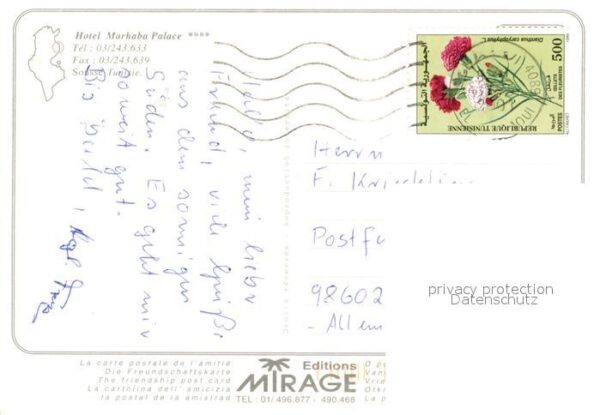 Hotel Marhaba Palace ****
Tél : 03/243.633
Fax : 03/243.639
Sousse Tunisie
Hallo, mein lieber
Freund, viele Grüße
aus dem sonnigen
Süden. Es geht mir
soweit gut.
Bis bald,
Dianthus caryophyllus L.
500
الجمهورية التونسية
OEILLETS
DES FLEURISTES
POSTES
REPUBLIQUE TUNISIENNE
Herrn
F.
Postf
98602
- Allem
privacy protection
Datenschutz
La carte postale de l'amitié
Die Freundschaftskarte
The friendship post card
La cartolina dell' amicizia
la postal de la amistad
Editions
MIRAGE
TEL : 01/ 496.877 - 490.468